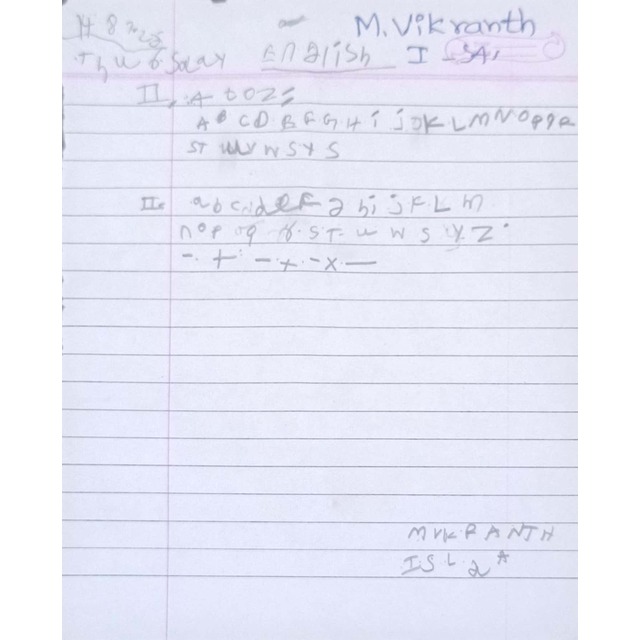 M. Vikranth
Thursday English I - "A"
II, A to Z;
A B C D B F G H i j o K L M N O P q R
ST UV W S Y S
II. a b c d e F g h i j K L m
n o p q r S T u W S Y Z
- + - + - x -
M V K R A N T H